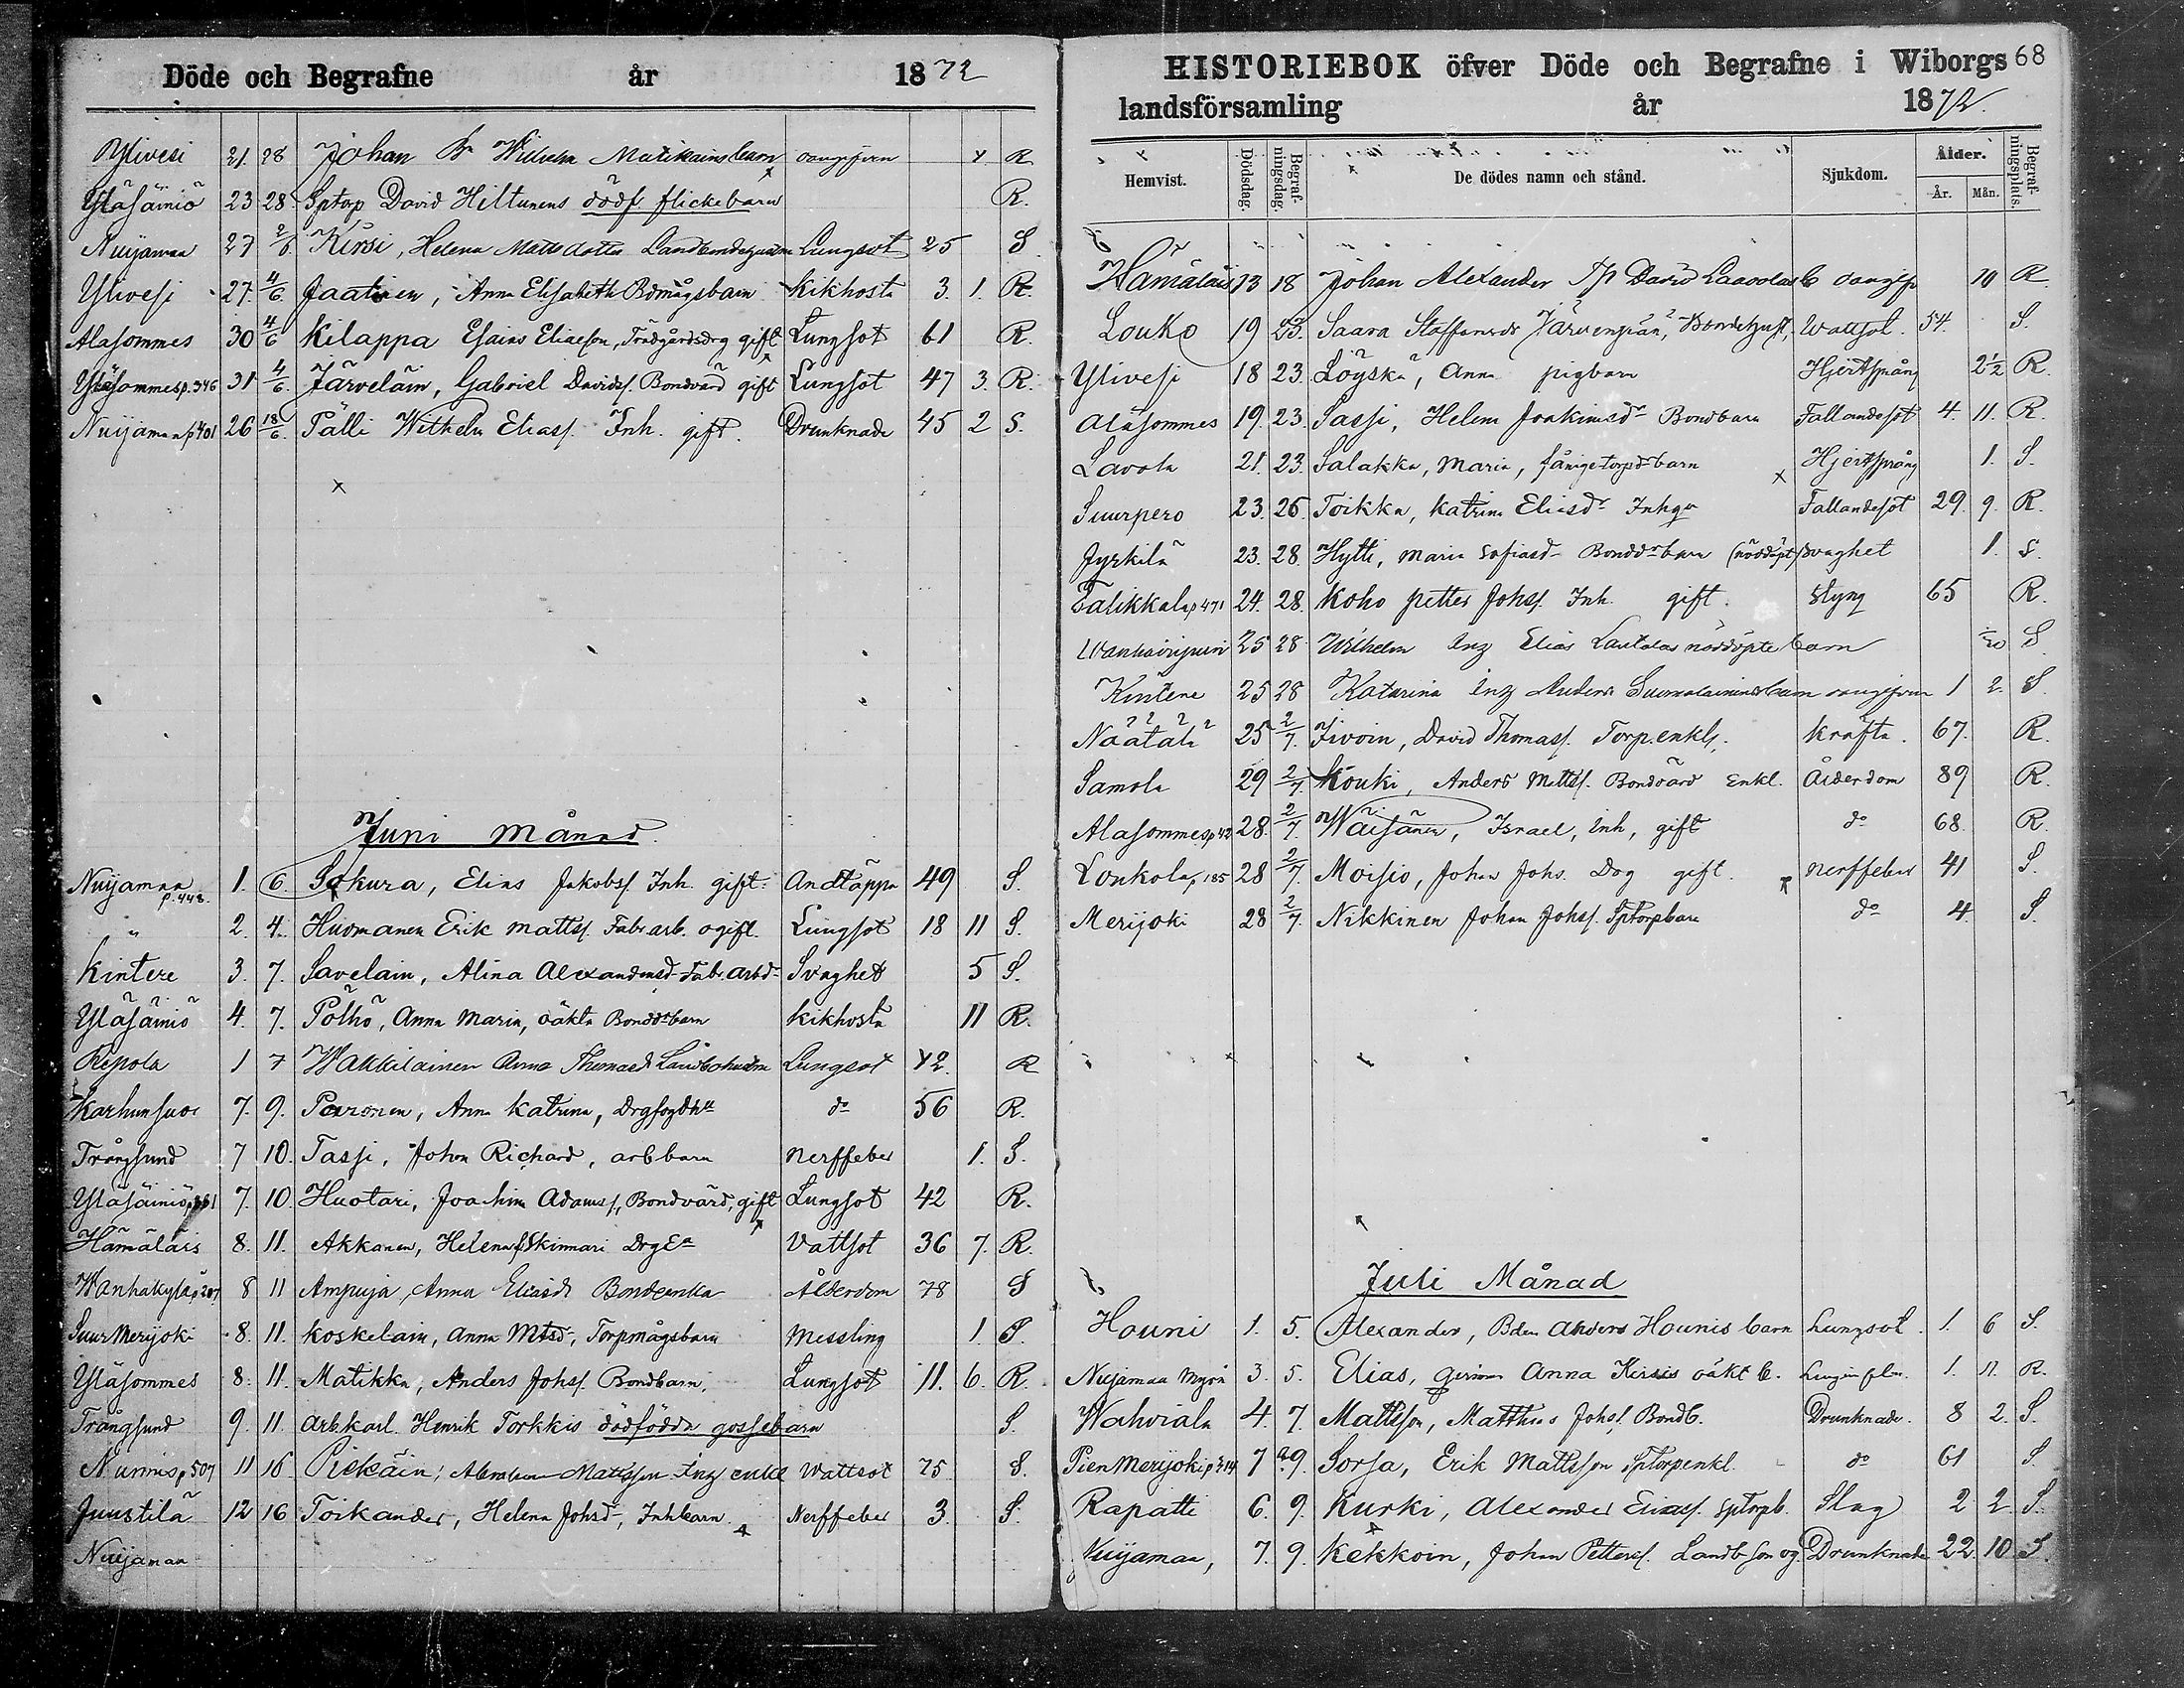 Döde och Begrafne år 1872
Ylivesi 21. 28 Johan Wilhelm Matikains barn oangifven R.
Yläsäiniö 23 28. Sptorp David Hiltunens dödf. flickebarn R.
Nuijamaa 27 2/6. Kirsi, Helena Matts dotter Lungsot 25 S.
Ylivesi 27. 4/6. Jaatinen, Anna Elisabeth Bdmågsbarn Kikhosta 3. 1. R.
Alasommes 30 4/6 Kilappa Esaias Eliasson, Trädgårdsdrg gift Lungsot 61 R.
Yläsommes p. 346 31 4/6. Järveläin, Gabriel Davidss. Bondvärd gift Lungsot 47 3. R.
Nuijamaa p 401 26 18/6. Pälli Wilhelm Eliass. Inh. gift. Drunknade 45 2 S.
Juni Månad.
Nuijamaa p. 448. 1. 6. Sakura, Elias Jakobss. Inh. gift. Andtäppa 49 S.
" 2. 4. Huomanen Erik Mattss. Fabr. arb. ogift. Lungsot 18 11 S.
Kintere 3. 7. Savelain, Alina Alexandersd Fab. arbd Svaghet 5 S.
Yläsäiniö 4. 7. Pölhö, Anna Maria, oäkta Bonddrbarn Kikhosta 11 R.
Repola 1 7 Wakkilainen Anna Thomasd Lungsot 42. R
Karhunsuo 7. 9. Paronen, Anna Katrina, do 56 R.
Trångsund 7 10. Tassi, Johan Richard, arb barn Nerffeber 1. S.
Yläsäiniö p. 361 7. 10. Huotari, Joachim Adamss., Bondvärd, gift Lungsot 42 R.
Hämäläis 8. 11. Akkanen, Helena f. Skinnari Drg Ea Vattsot 36 7. R.
Wanhakylä p 207 8 11 Ampuja, Anna Eliasdr Bondeenka Ålderdom 78 S
Suur Merijoki 8. 11. Koskelain, Anna Mtsd, Torpmågsbarn Messling 1. S.
Yläsommes 8. 11. Matikka, Anders Johss. Bondbarn. Lungsot 11. 6. R.
Trångsund 9. 11. Arb. karl Henrik Torkkis dödfödda gossebarn S.
Nurmis p 507 11 16 Piekäin, Abraham Mattsson Inh enkl Wattsot 75 S.
Juustilä 12 16 Toikander, Helena Johsd, Inhbarn. Nerffeber 3. S.
Nuijamaa
HISTORIEBOK öfver Döde och Begrafne i Wiborgs 68
landsförsamling år 1872.
Hemvist. Dödsdag. Begrafningsdag. De dödes namn och stånd. Sjukdom. Ålder. År. Mån. Begrafningsplats.
Hämäläis 13 18 Johan Alexander David Laavolas b. oangifv 10 R.
Louko 19 23. Saara Staffansdr Järvenpään, Bondehust, Wattsot. 54. S.
Ylivesi 18 23. Löyskä, Anna pigbarn Hjertsprång 2 1/2 R.
Aläsommes 19. 23. Sassi, Helena Joakimsdr Bondbarn Fallandesot 4. 11. R.
Lavola 21. 23. Salakka, Maria, barn Hjertsprång 1. S.
Suurpero 23. 26. Toikka, Katrina Eliasdr Inhqv Fallandesot 29. 9. R.
Jyrkilä 23. 28. Hytti, Maria Sofiasd Bonddr barn (nöddöpt) Svaghet 1. S.
Talikkala p 471 24. 28. Koho Petter Johss. Inh. gift. Styng 65 R.
25 28 Wilhelm Inh Elias Lautalas nöddöpte barn S
Kintere 25 28 Katarina Inh Anders Suomalainens barn oangifven 1 2. S.
Näätälä 25 2/7. Jivoin, David Thomass. Torp. enkl. Kräfta. 67. R.
Samola 29 2/7. Kouki, Anders Mattss. Bondvärd Enkl. Ålderdom 89 R.
Alasommes p 42 28. 2/7. Wäisänen, Israel, Inh, gift do 68. R.
Lonkola p. 185 28 2/7. Moisio, Johan Johs. Drg gift. Nerffeber 41 S.
Merijoki 28 2/7. Nikkinen Johan Johss. Sptorpbarn do 4. S.
Juli Månad
Houni 1. 5. Alexander, Bdn Anders Hounis barn Lungsot. 1. 6 S.
Nuijamaa 3. 5. Elias, Anna Kirsis oäkt b. 1. 11. R.
Wahviala 4. 7. Mattsson, Matthias Johss. Bondb. Drunknade. 8 2. S.
Pien Merijoki p 314 7 9. Sorsa, Erik Mattsson Sptorpenkl. do 61 S.
Rapatti 6. 9. Kurki, Alexander Eliass. Sptorpb. Slag 2 2. S.
Nuijamaa, 7. 9. Kekkoin, Johan Petterss. Landb son og. Drunknade 22 10 S.